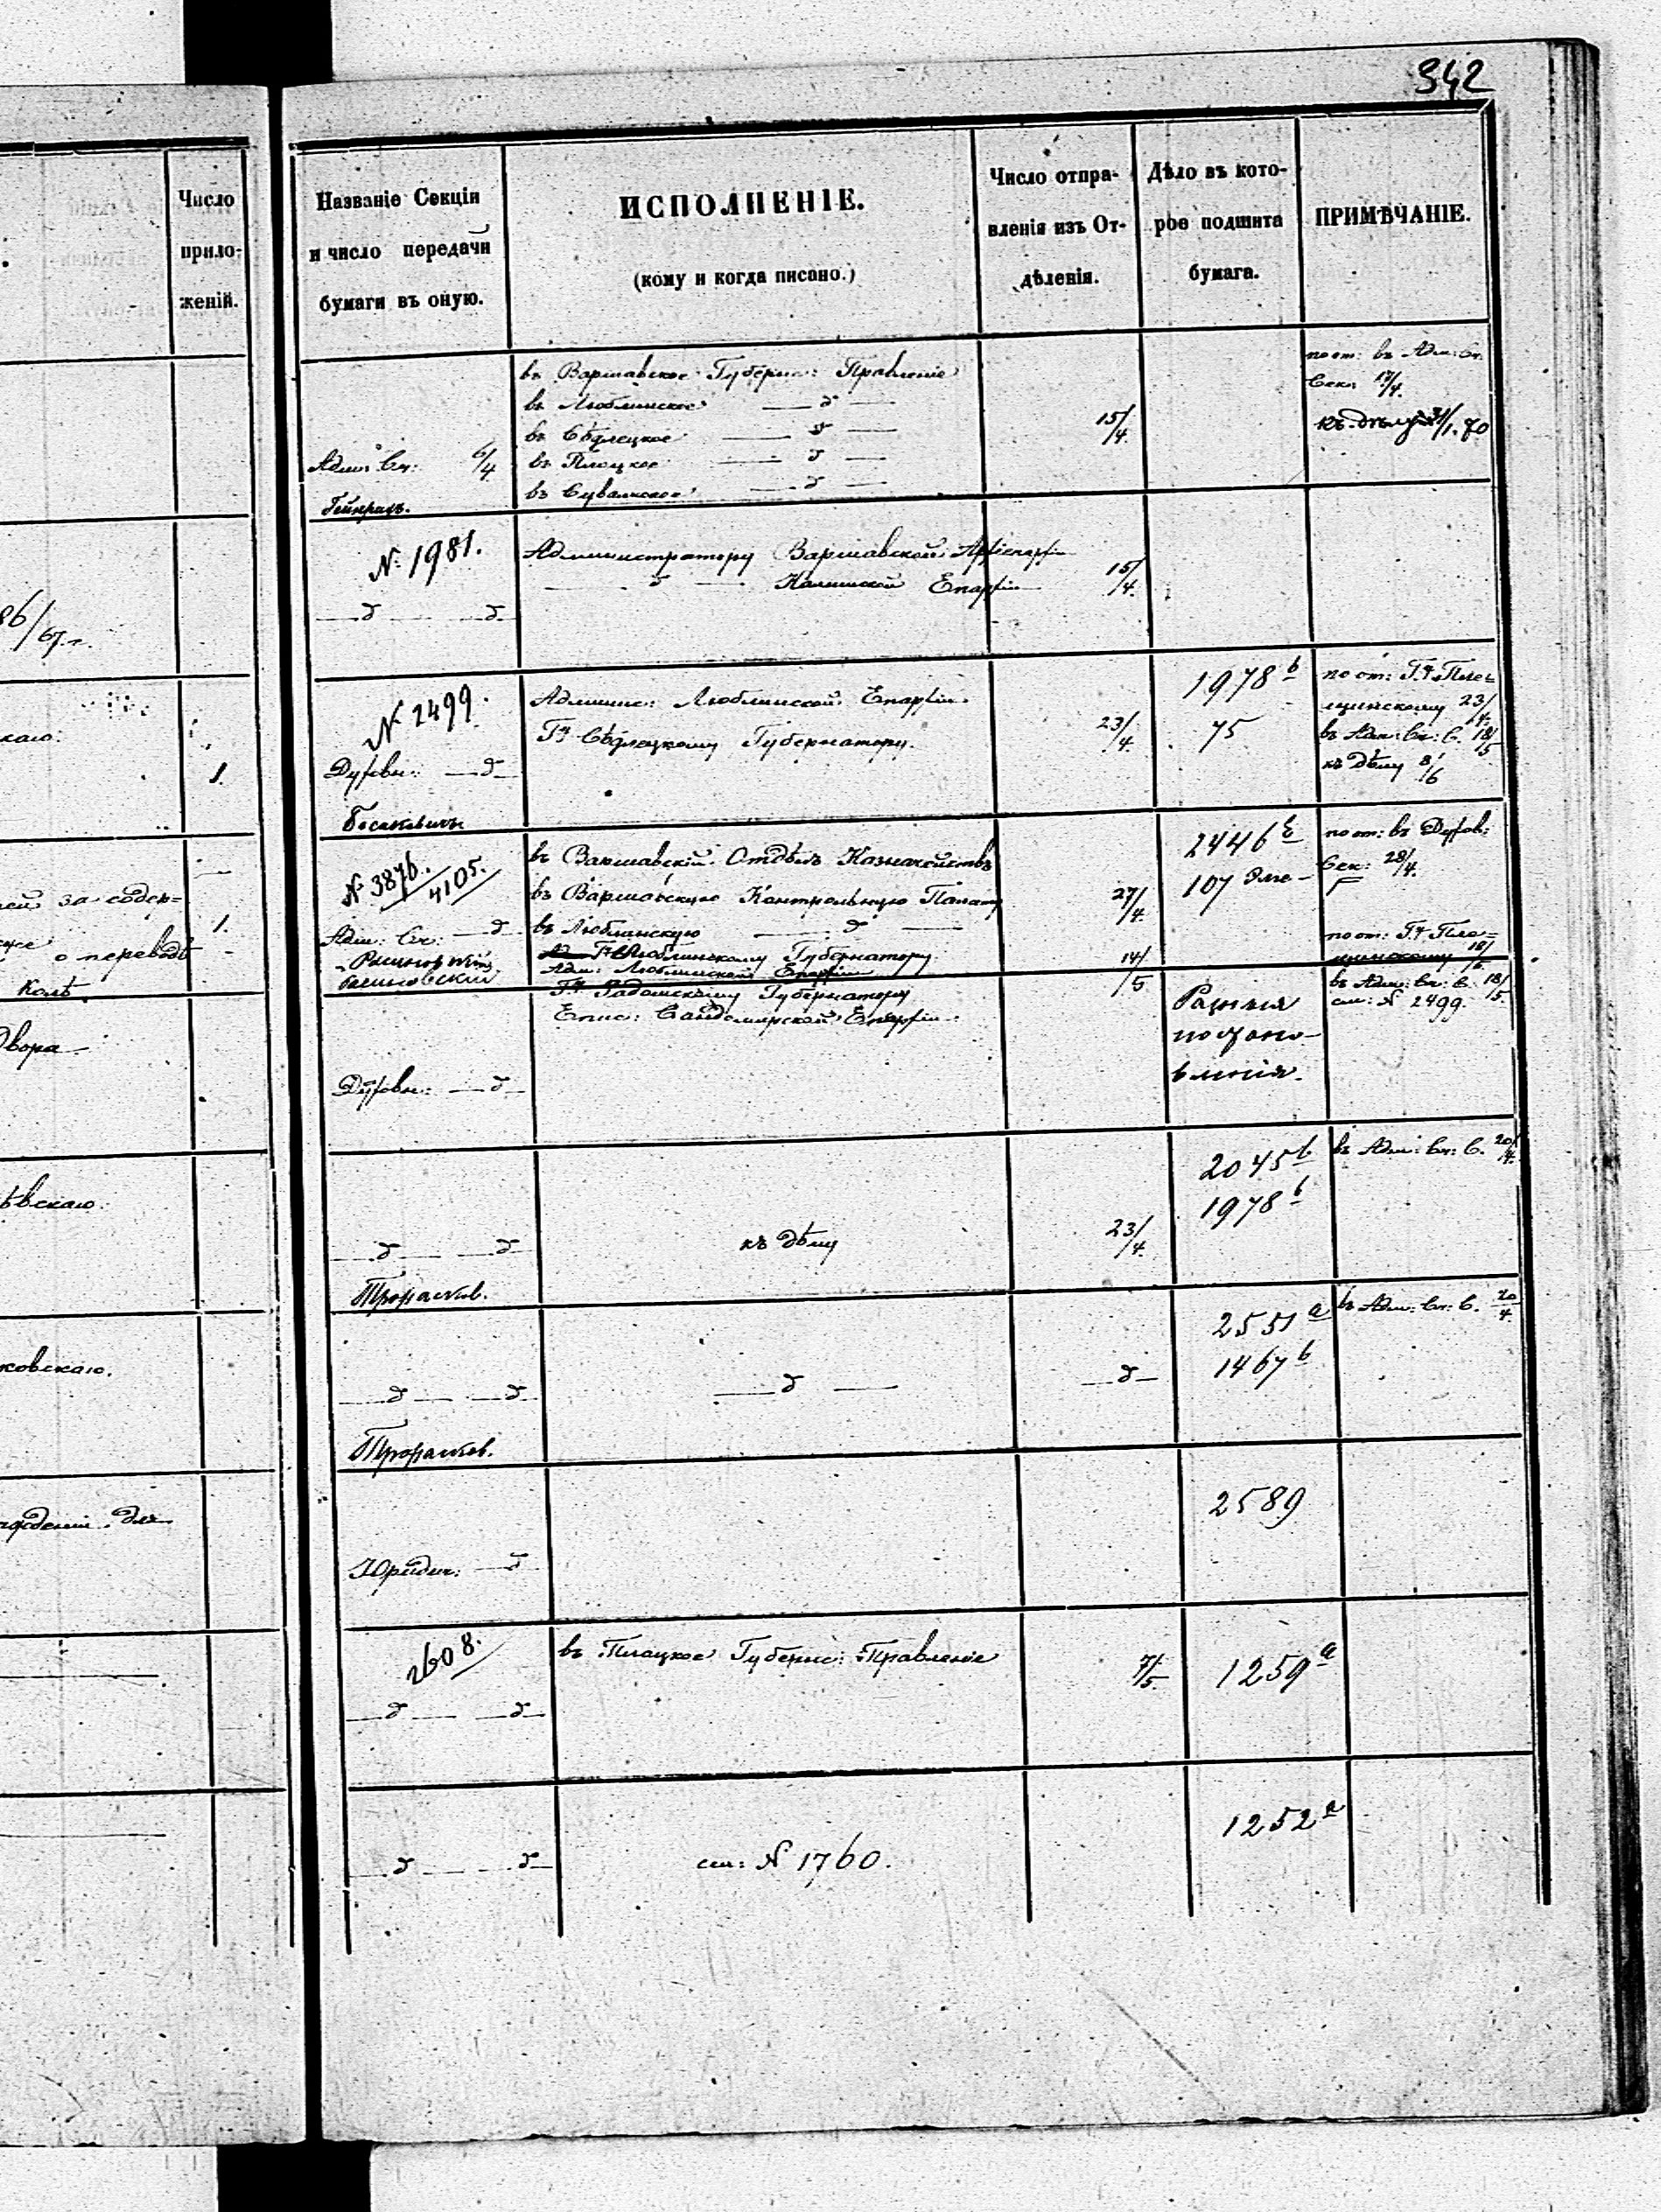 342
Число
прило-
женій.
86/67 г.
скаго.
1.
ей за содер=
1.
же о переводѣ
Колѣ
Двора
ѣвскаго.
ковскаго.
для
Названіе Секціи
и число передачи
бумаги въ оную.
ИСПОЛНЕНІЕ.
(кому и когда писано.)
Число отпра-
вленія изъ От-
дѣленія.
Дѣло въ кото-
рое подшита
бумага.
ПРИМѢЧАНІЕ.
Адм: Сч: 6/4
въ Варшавское Губернс: Правленіе
въ Люблинское — д —
въ Сѣдлецкое — д —
въ Плоцкое — д —
въ Сувалкское — д —
15/4.
пост: въ Адм: Сч.
Секц: 17/4.
къ дѣлу 31/1. 70
№ 1981.
— д — — д —
Администратору Варшавской Архіепархіи
— д — Калишской Епархіи
15/4.
№ 2499.
Духовн: — д —
Админис: Люблинской Епархіи.
Гну Сѣдлецкому Губернатору.
23/4.
1978 b
75
пост: Гну Пле=
щинскому 23/4.
въ Адм: Сч: С. 18/5
къ дѣлу 8/6
№ 3876.
4105.
Адм: Сч: — д
въ Варшавскій Отдѣлъ Казначействъ
въ Варшавскую Контрольную Палату
въ Люблинскую — д —
Люблинскому Губернатору
Адм: Люблинской Епархіи
27/4.
14/5
2446
107
пост: въ Духов:
Сек: 28/4.
пост: Гну Пле=
щинскому 18/5.
Духовн: — д —
Гну Радомскому Губернатору
Епис: Сандомирской Епархіи.
Разныя
постано-
вленія.
въ Адм: Сч: С. 18/5.
см: № 2499.
— д — — д —
къ дѣлу
23/4.
2045 b
1978 b
въ Адм: Сч: С. 20/4.
— д — — д —
— д —
— д —
2551 a
1467 b
въ Адм: Сч: С. 20/4.
Юридич: — д
2589
2608.
— д — — д —
въ Плоцкое Губернс: Правленіе
7/5.
1259 a
— д — — д —
см: № 1760.
1252 a